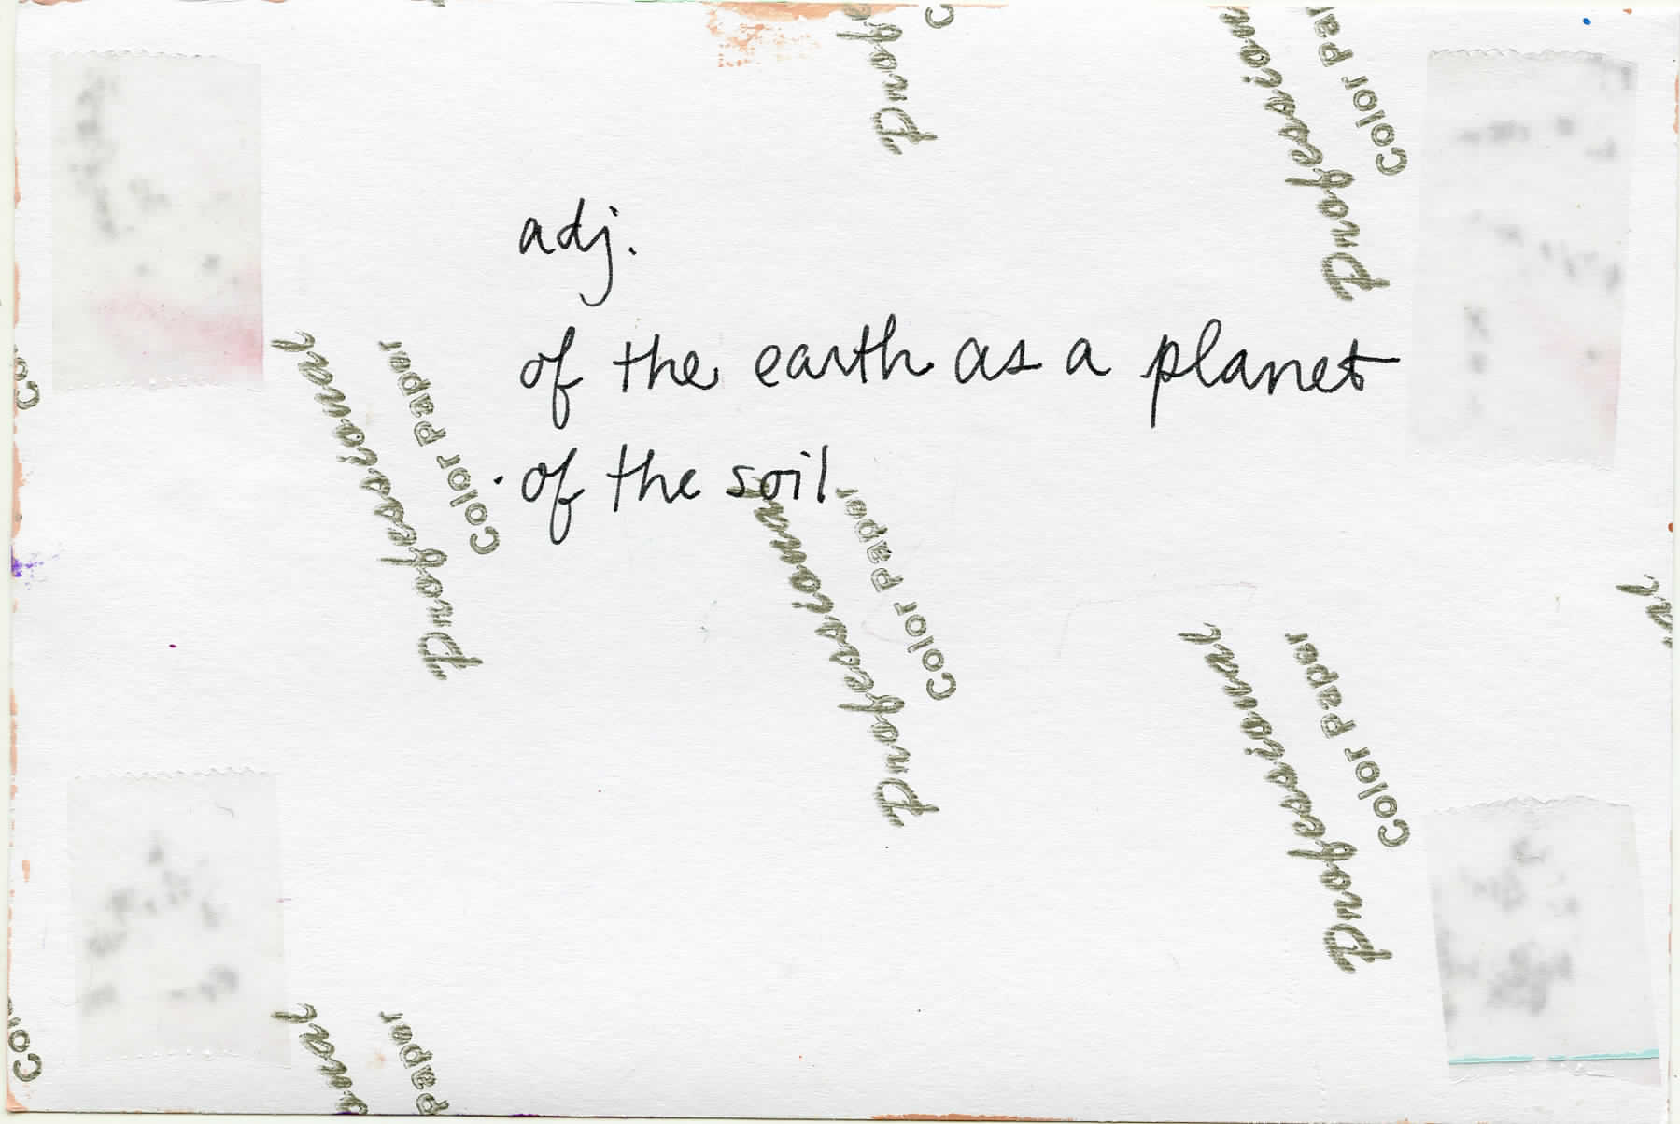 adj.
of the earth as a planet
· of the soil
Professional
Color Paper
Professional
Color Paper
Professional
Color Paper
Professional
Color Paper
Prof
C
onal
Paper
Co
Co
al